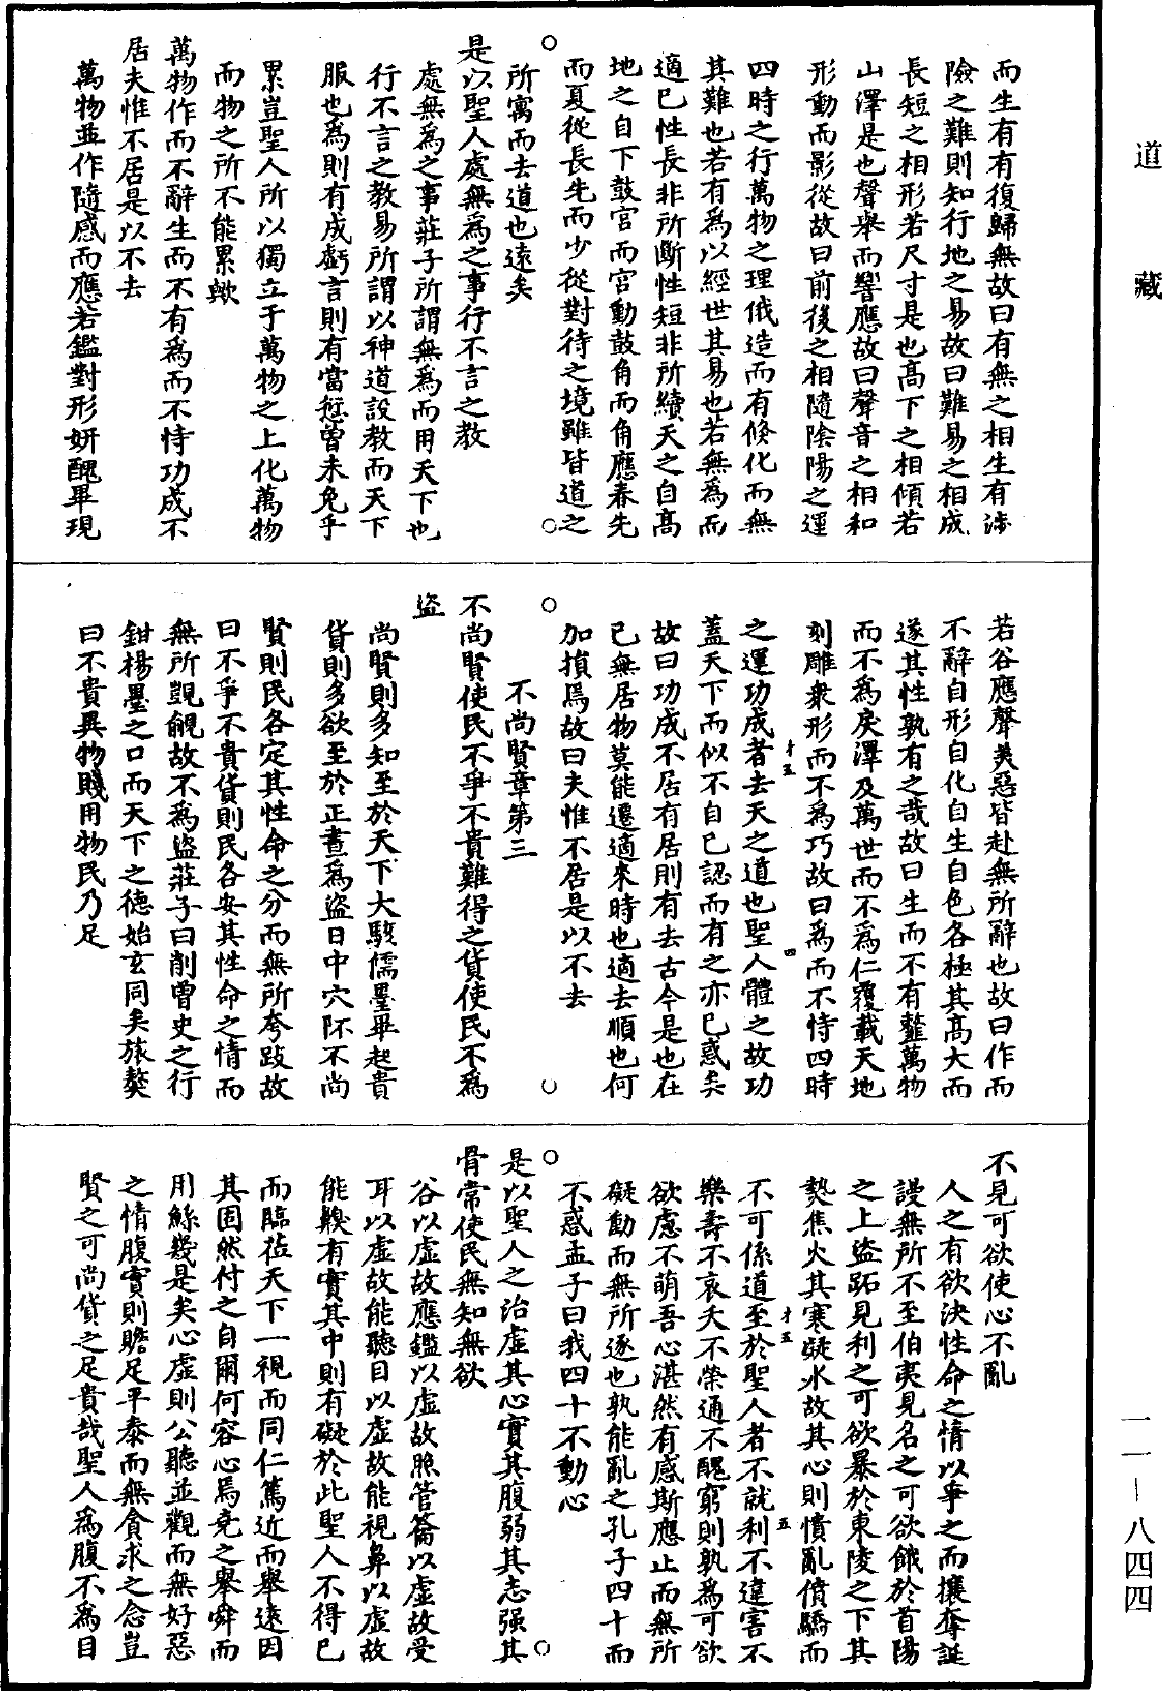 道藏
而生有有復歸無故曰有無之相生有涉
險之難則知行地之易故曰難易之相成
長短之相形若尺寸是也高下之相傾若
山澤是也聲舉而響應故曰聲音之相和
形動而影從故曰前後之相隨陰陽之運
四時之行萬物之理俄造而有倏化而無
其難也若有為以經世其易也若無為而
適已性長非所斷性短非所續天之自高
地之自下鼓宮而宮動鼓角而角應春先
而夏從長先而少從對待之境雖皆道之
所寓而去道也遠矣
是以聖人處無為之事行不言之教
處無為之事莊子所謂無為而用天下也
行不言之教易所謂以神道設教而天下
服也為則有成虧言則有當愆曾未免乎
累豈聖人所以獨立于萬物之上化萬物
而物之所不能累歟
萬物作而不辭生而不有為而不恃功成不
居夫惟不居是以不去
萬物並作隨感而應若鑑對形妍醜畢現
若谷應聲美惡皆赴無所辭也故曰作而
不辭自形自化自生自色各極其高大而
遂其性孰有之哉故曰生而不有䪠萬物
而不為戾澤及萬世而不為仁覆載天地
刻雕衆形而不為巧故曰為而不恃四時
之運功成者去天之道也聖人體之故功
蓋天下而似不自已認而有之亦已惑矣
故曰功成不居有居則有去古今是也在
已無居物莫能遷適來時也適去順也何
加損焉故曰夫惟不居是以不去
不尚賢章第三
不尚賢使民不爭不貴難得之貨使民不為
盜
尚賢則多知至於天下大駭儒墨畢起貴
貨則多欲至於正晝為盜日中穴阫不尚
賢則民各定其性命之分而無所夸跂故
曰不爭不貴貨則民各安其性命之情而
無所覬覦故不為盜莊子曰削曾史之行
鉗楊墨之口而天下之德始玄同矣旅獒
曰不貴異物賤用物民乃足
不見可欲使心不亂
人之有欲決性命之情以爭之而攘奪誕
謾無所不至伯夷見名之可欲餓於首陽
之上盜跖見利之可欲暴於東陵之下其
熱焦火其寒凝冰故其心則憒亂僨驕而
不可係道至於聖人者不就利不違害不
樂壽不哀夭不榮通不醜窮則孰為可欲
欲慮不萌吾心湛然有感斯應止而無所
礙動而無所逐也孰能亂之孔子四十而
不惑孟子曰我四十不動心
是以聖人之治虛其心實其腹弱其志强其
骨常使民無知無欲
谷以虛故應鑑以虛故照管籥以虛故受
耳以虛故能聽目以虛故能視鼻以虛故
能齅有實其中則有礙於此聖人不得已
而臨莅天下一視而同仁篤近而舉遠因
其固然付之自爾何容心焉堯之舉舜而
用鯀幾是矣心虛則公聽並觀而無好惡
之情腹實則贍足平泰而無貪求之念豈
賢之可尚貨之足貴哉聖人為腹不為目
才五
四
才五
五
一一－八四四